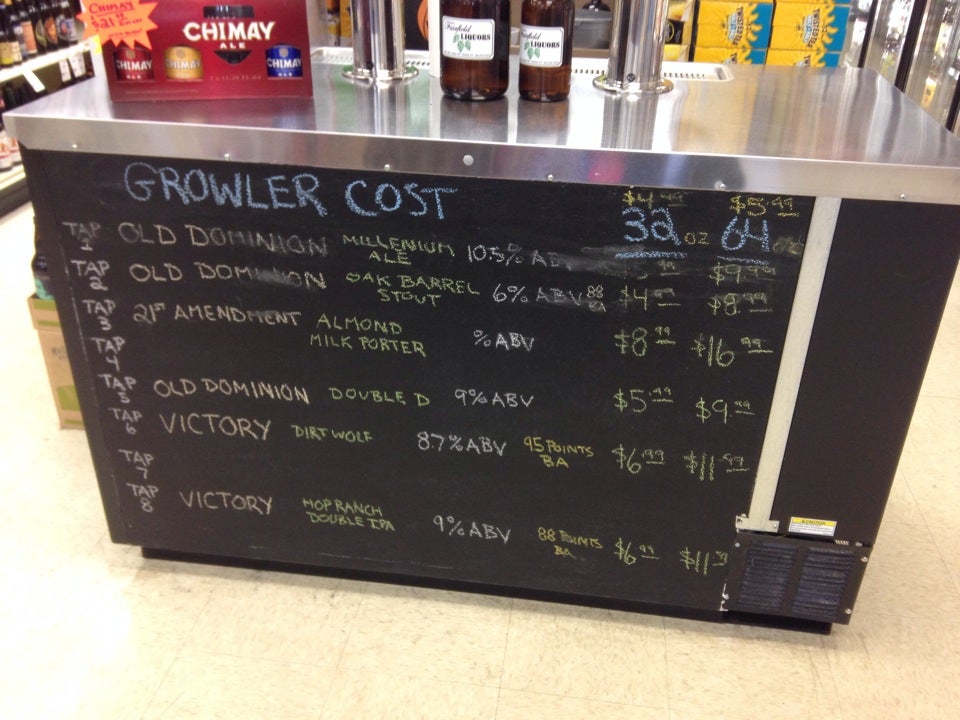 CHIMAY
CHIMAY
ALE
CHIMAY CHIMAY CHIMAY
ALE
Fairfield
LIQUORS
Fairfield
LIQUORS
GROWLER COST
32 OZ 64
TAP 1 OLD DOMINION MILLENIUM ALE 10.5% $9.99
TAP 2 OLD DOMINION OAK BARREL STOUT 6% ABV 88 BA $4.99 $8.99
TAP 3 21ST AMENDMENT ALMOND MILK PORTER % ABV $8.99 $16.99
TAP 4
TAP 5 OLD DOMINION DOUBLE D 9% ABV $5.99 $9.99
TAP 6 VICTORY DIRT WOLF 8.7% ABV 95 POINTS BA $6.99 $11.99
TAP 7
TAP 8 VICTORY HOP RANCH DOUBLE IPA 9% ABV 88 POINTS BA $6.99 $11.99